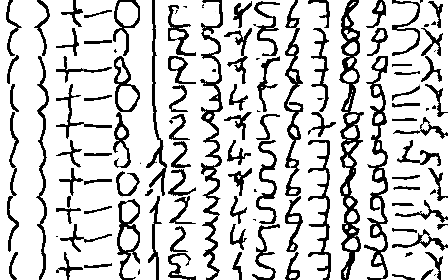 ( ) + - 0 1 2 3 4 5 6 7 8 9 = x
( ) + - 0 1 2 3 4 5 6 7 8 9 = x
( ) + - 0 1 2 3 4 5 6 7 8 9 = x
( ) + - 0 1 2 3 4 5 6 7 8 9 = x
( ) + - 0 1 2 3 4 5 6 7 8 9 =
( ) + - 0 1 2 3 4 5 6 7 8 9
( ) + - 0 1 2 3 4 5 6 7 8 9 = x
( ) + - 0 1 2 3 4 5 6 7 8 9 = x
( ) + - 0 1 2 3 4 5 6 7 8 9 = x
( ) + - 0 1 2 3 4 5 6 7 8 9 = x